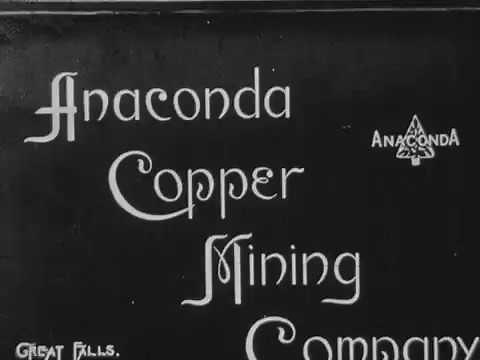 Anaconda
ANACONDA
Copper
Mining
Company
GREAT FALLS.